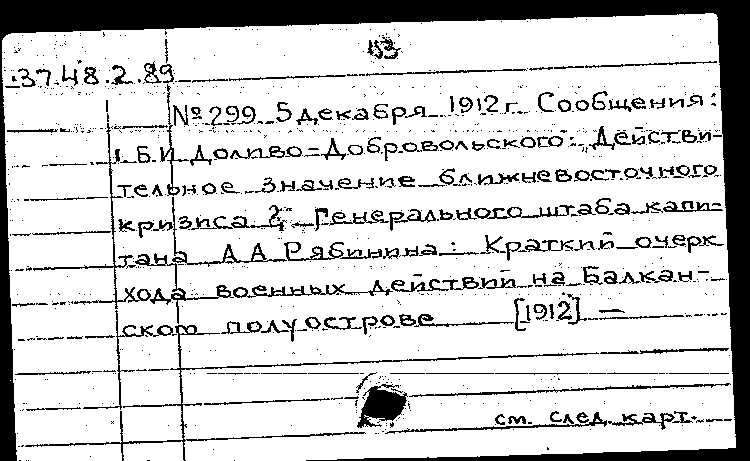 113
37.48.2.89
№ 299 5 декабря 1912 г. Сообщения:
1. Б.И. Доливо-Добровольского: Действи-
тельное значение ближневосточного
кризиса 2, Генерального штаба капи-
тана А А Рябинина: Краткий очерк
хода военных действий на Балкан-
ском полуострове [1912] —
см. след. карт.